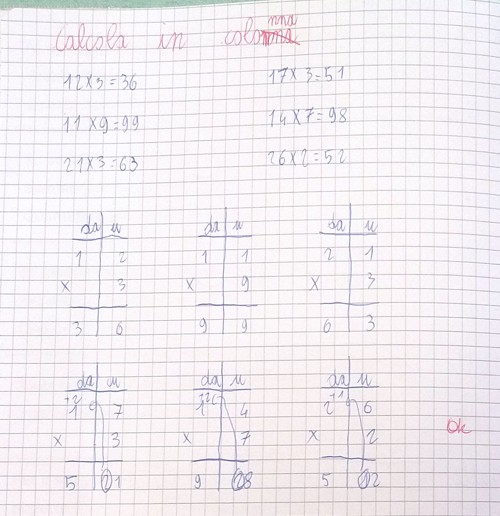 Calcola in colonna
12×3=36 17×3=51
11×9=99 14×7=98
21×3=63 26×2=52
da u da u da u
1 2 1 1 2 1
× 3 × 9 × 3
3 6 9 9 6 3
da u da u da u
1 7 1 4 2 6
× 3 × 7 × 2
5 1 9 8 5 2
Ok